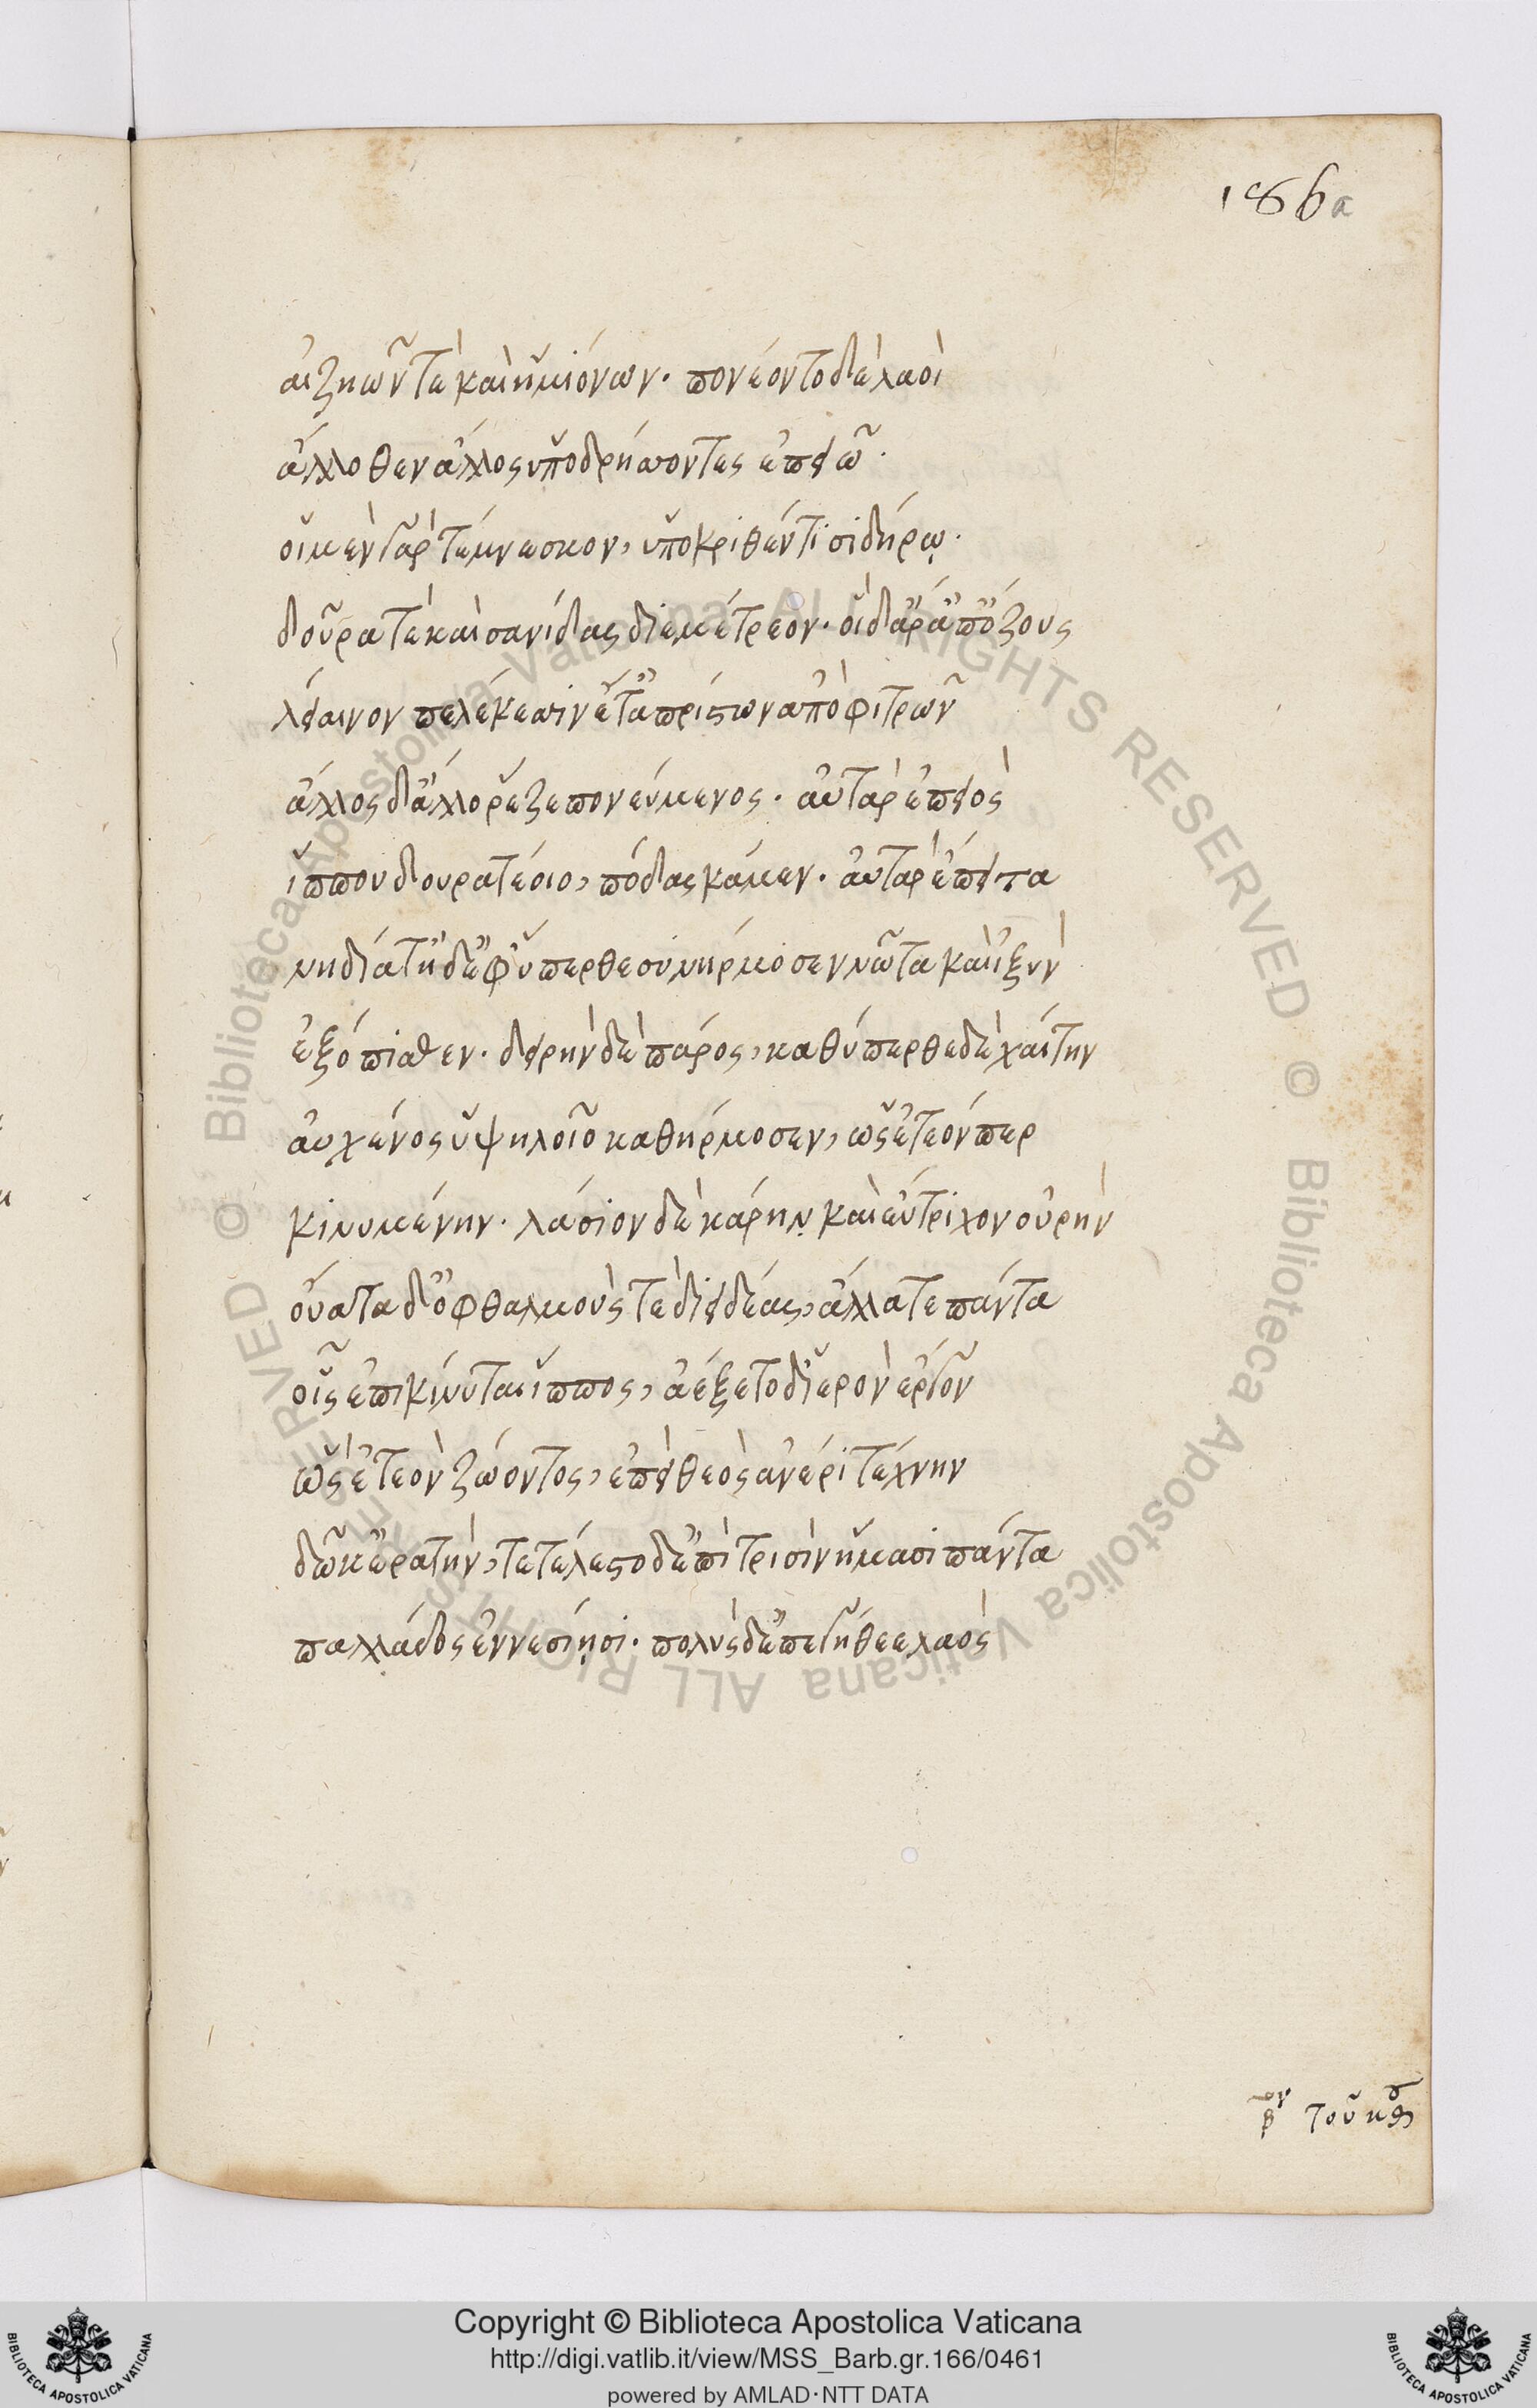 186a
αἰζηῶν τὲ καὶ ἡμιόνων· πονέοντο δὲ λαοὶ
ἄλλοθεν ἄλλος ὑποδρήσσοντες ἐπειῷ·
οἱ μὲν γὰρ τέμνεσκον, ὑποκριθέντι σιδήρῳ·
δοῦρα τὲ καὶ σανίδας διεμέτρεον· οἱ δ' ἄρ' ἀπ' ὄζους
λείαινον πελέκεσσιν ἔτ' ἀπρίστων ἀπὸ φιτρῶν
ἄλλος δ' ἄλλο ῥέζε πονεύμενος· αὐτὰρ ἐπειὸς
ἵππου δουρατέοιο, πόδας κάμεν· αὐτὰρ ἔπειτα
νηδία τῇ δ' ἐφύπερθε συνήρμοσεν νῶτα καὶ ἰξὺν
ἐξόπιθεν· δειρὴν δὲ πάρος, καθύπερθε δὲ χαίτην
αὐχένος ὑψηλοῖο καθήρμοσεν, ὡς ἐτεόν περ
κινυμένην· λάσιον δὲ κάρην καὶ εὔτριχον οὐρὴν
οὔατα δ' ὀφθαλμούς τὲ διειδέας, ἄλλα τε πάντα
οἷς ἐπικίνυται ἵππος, ἀέξετο δ' ἱερὸν ἔργον
ὡς ἐτεὸν ζώοντος, ἐπεὶ θεὸς ἀνέρι τέχνην
δῶκ' ἐρατήν, τετέλεστο δ' ἐπὶ τρισὶν ἤμασι πάντα
παλλάδος ἐννεσίῃσι· πολὺς δ' ἐπεγήθεε λαὸς
Copyright © Biblioteca Apostolica Vaticana
http://digi.vatlib.it/view/MSS_Barb.gr.166/0461
powered by AMLAD·NTT DATA
© Biblioteca Apostolica Vaticana ALL RIGHTS RESERVED © Biblioteca Apostolica Vaticana ALL RIGHTS RESERVED
BIBLIOTECA APOSTOLICA VATICANA
BIBLIOTECA APOSTOLICA VATICANA